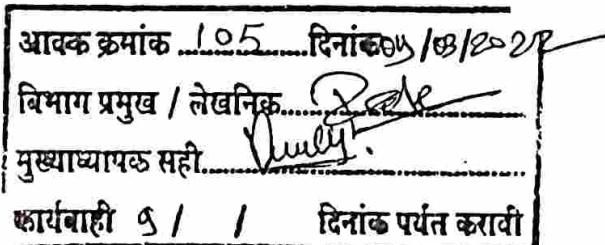 आवक क्रमांक ....105.... दिनांक 09/03/2022
विभाग प्रमुख / लेखनिक........
मुख्याध्यापक सही........
कार्यवाही 9 /   / दिनांक पर्यंत करावी